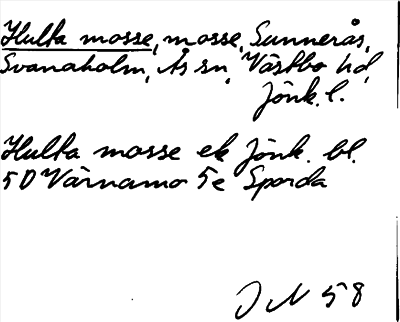 Hulta mosse, mosse, Sunnerås,
Svanaholm, Ås sn, Västbo hd,
Jönk. l.
Hulta mosse ek Jönk. bl.
5D Värnamo 5e Sporda
J N 58